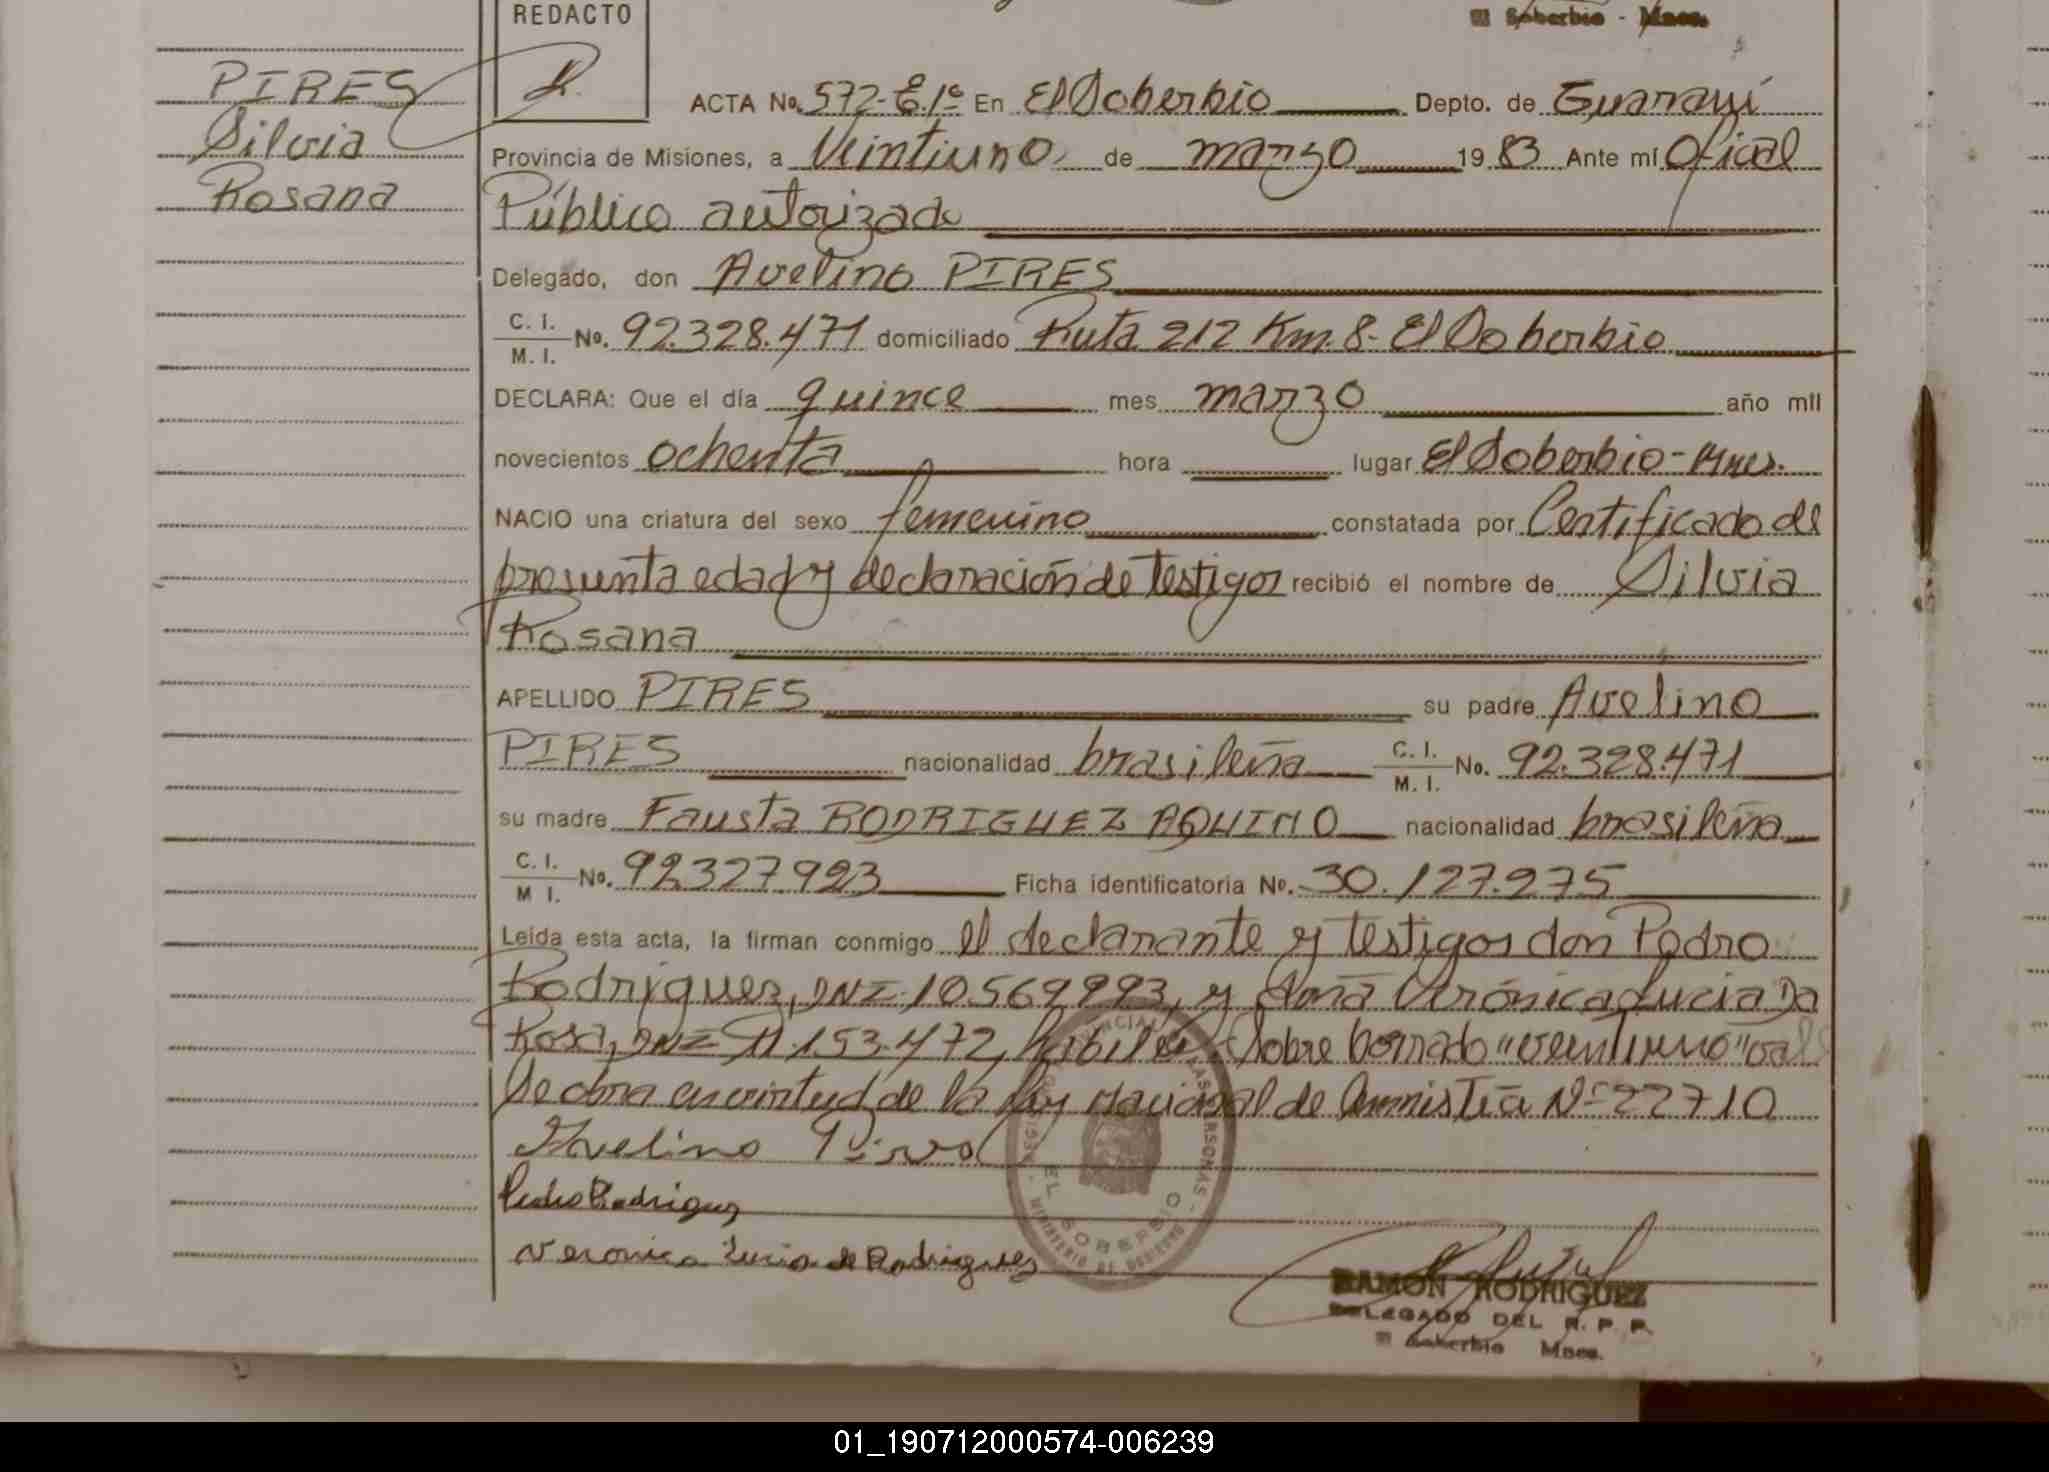 REDACTO
El Soberbio - Mnes.
PIRES
Silvia
Rosana
ACTA No. 572-E.1º En El Soberbio Depto. de Guaraní
Provincia de Misiones, a Veintiuno de marzo 19 83 Ante mí Oficial
Público autorizado
Delegado, don Avelino PIRES
C. I. / M. I. No. 92.328.471 domiciliado Ruta 212 Km. 8- El Soberbio
DECLARA: Que el día quince mes marzo año mil
novecientos ochenta hora lugar El Soberbio - Mnes.
NACIO una criatura del sexo femenino constatada por Certificado de
presunta edad y declaración de testigos recibió el nombre de Silvia
Rosana
APELLIDO PIRES su padre Avelino
PIRES nacionalidad brasileña C. I. / M. I. No. 92.328.471
su madre Fausta RODRIGUEZ AQUINO nacionalidad brasileña
C. I. / M I. No. 92327923 Ficha identificatoria No. 30.127.275
Leída esta acta, la firman conmigo el declarante y testigos don Pedro
Rodríguez, DNI 10.569.993, y doña Verónica Lucia Da
Rosa, DNI 11.153.472, hábiles. Sobre borrado "veintiuno" vale
Se obra en virtud de la Ley Nacional de Amnistía Nº 22710
Avelino
Pedro Rodriguez
Veronica Lucia de Rodriguez
EL SOBERBIO
MINISTERIO DE GOBIERNO
RAMON RODRIGUEZ
DELEGADO DEL R. P. P.
El Soberbio Mnes.
01_190712000574-006239